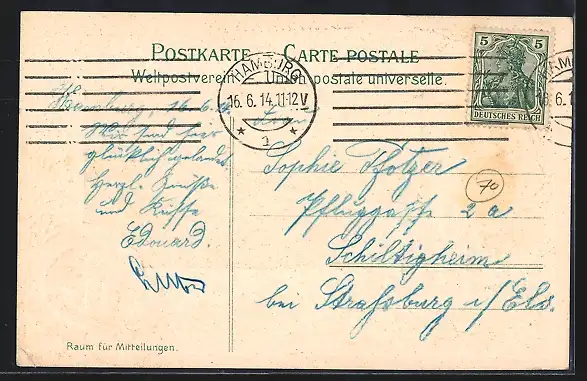 POSTKARTE CARTE POSTALE
Weltpostverein Union postale universelle.
HAMBURG
16.6.14.11-12V
* 1 *
5 5
DEUTSCHES REICH
Hamburg, 16.6.
Wir sind hier
glücklich gelandet.
Herzl. Grüße
und Küsse
Edouard.
Sophie Pfotzer
Pfluggasse 2a
Schiltigheim
bei Straßburg i/Els.
70
Raum für Mitteilungen.